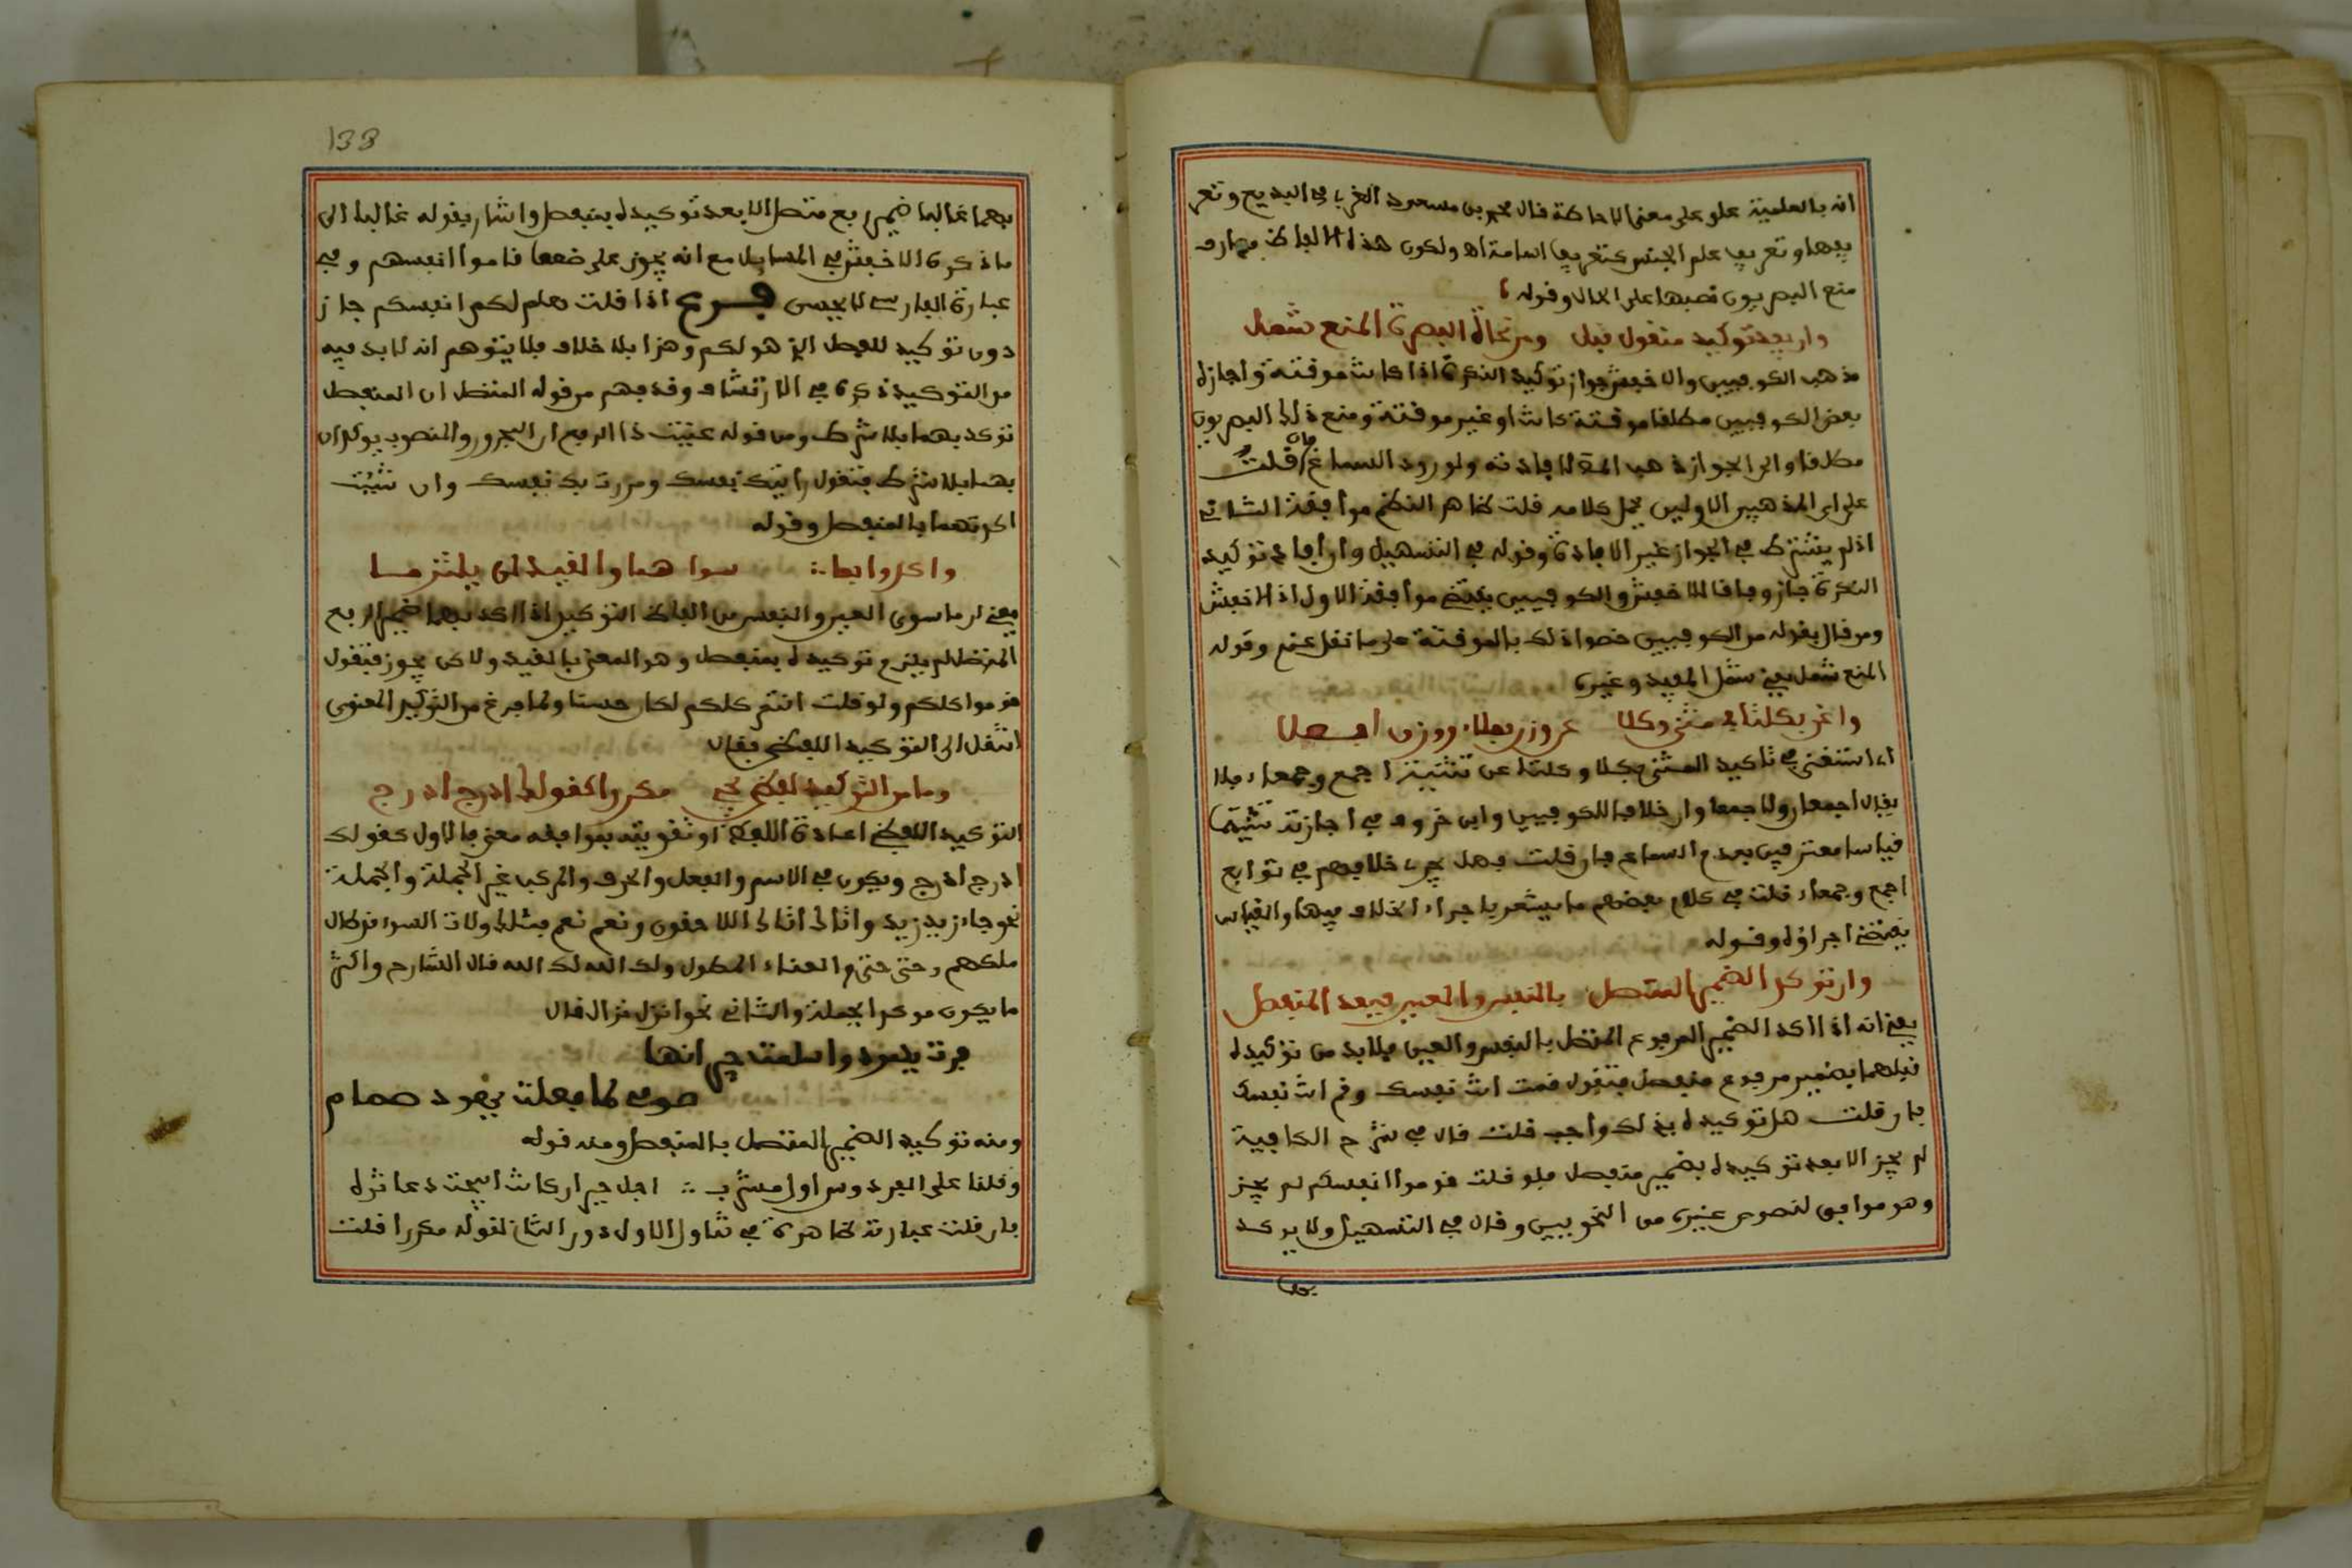 انه بالعلمية علو على معنى الاحاطة قال محمد بن مسعود الغزني في البديع وتعر
يفها وتعريف علم الجنس كتعريف اسامة اه ولكون هذه الالفاظ معارف
منع البصريون نصبها على الحال وقوله
وان يفد توكيد منكور قبل وعن نحاة البصرة المنع شمل
مذهب الكوفيين والاخفش جواز توكيد النكرة اذا كانت موقتة واجازه
بعض الكوفيين مطلقا موقتة كانت او غير موقتة ومنع ذلك البصريون
مطلقا والى الجواز ذهب المص لافادته ولورود السماع فان قلت
على اي المذهبين الاولين يحمل كلامه قلت ظاهر النظم موافقة الثاني
اذ لم يشترط في الجواز غير الافادة وقوله في التسهيل وان افاد توكيد
النكرة جاز وفاقا للاخفش والكوفيين يقتضي موافقة الاول اذ الاخفش
ومن قال بقوله من الكوفيين خصوا ذلك بالموقتة على ما نقل عنهم وقوله
المنع شمل يعني شمل المفيد وغيره
واغن بكلتا في مثنى وكلا عن وزن فعلاء ووزن افعلا
اي استغني في تاكيد المثنى بكلا وكلتا عن تثنية اجمع وجمعاء فلا
يقال اجمعان ولا جمعاوان خلافا للكوفيين وابن خروف في اجازته تثنيتهما
قياسا معترفين بعدم السماع فان قلت فهل يجري خلافهم في توابع
اجمع وجمعاء قلت في كلام بعضهم ما يشعر باجراء الخلاف فيها والقياس
يقتضي اجراؤه وقوله
وان توكد الضمير المتصل بالنفس والعين فبعد المنفصل
يعني انه اذا اكد الضمير المرفوع المتصل بالنفس والعين فلا بد من توكيده
قبلهما بضمير مرفوع منفصل فتقول قمت انت نفسك وقم انت نفسك
فان قلت هل توكيده بذلك واجب قلت قال في شرح الكافية
لم يجز الا بعد توكيده بضمير منفصل فلو قلت قوموا انفسكم لم يجز
وهو موافق لنصوص غيره من النحويين وقال في التسهيل ولا يوكد
بهما
133
بهما غالبا ضمير رفع متصل الا بعد توكيده بمنفصل واشار بقوله غالبا الى
ما ذكره الاخفش في المسايل مع انه يجوز على ضعف قاموا انفسهم وفي
عبارة الفارسي لا يحسن فرع اذا قلت هلم لكم انفسكم جاز
دون توكيد للفصل الذي هو لكم وهذا بلا خلاف فلا يتوهم انه لا بد فيه
من التوكيد ذكره في الارتشاف وقد فهم من قوله المتصل ان المنفصل
توكد بهما بلا شرط ومن قوله عنيت ذا الرفع ان المجرور والمنصوب يوكدان
بهما بلا شرط فتقول رايتك نفسك ومررت بك نفسك وان شئت
اكدتهما بالمنفصل وقوله
واكدوا بما ∴ سواهما والقيد لن يلتزما
يعني ان ما سوى العين والنفس من الفاظ التوكيد اذا اكد بهما ضمير الرفع
المتصل لم يلزم توكيده بمنفصل وهو المعني بالقيد ولكن يجوز فتقول
قوموا كلكم ولو قلت انتم كلكم لكان حسنا ولما فرغ من التوكيد المعنوي
انتقل الى التوكيد اللفظي فقال
وما من التوكيد لفظي يجي مكررا كقولك ادرج ادرج
التوكيد اللفظي اعادة اللفظ او تقويته بموافقه معنى فالاول كقولك
ادرج ادرج ويكون في الاسم والفعل والحرف والمركب غير الجملة والجملة
نحو جاء زيد زيد واتاك اتاك اللاحقون ونعم نعم فتلك ولات السوء قد طال
ملكهم وحتى حتى م العناء المطول ولك الله لك الله قال الشارح واكثر
ما يكون موكدا لجملة والثاني نحو انزل نزال قال
فرت يهود واسلمت جيرانها
صمي لما فعلت يهود صمام
ومنه توكيد الضمير المتصل بالمنفصل ومنه قوله
وقلنا على الفردوس اول مشرب ∴ اجل جير ان كانت ابيحت دعاثره
فان قلت عبارته ظاهرة في تناول الاول دون الثاني لقوله مكررا قلت